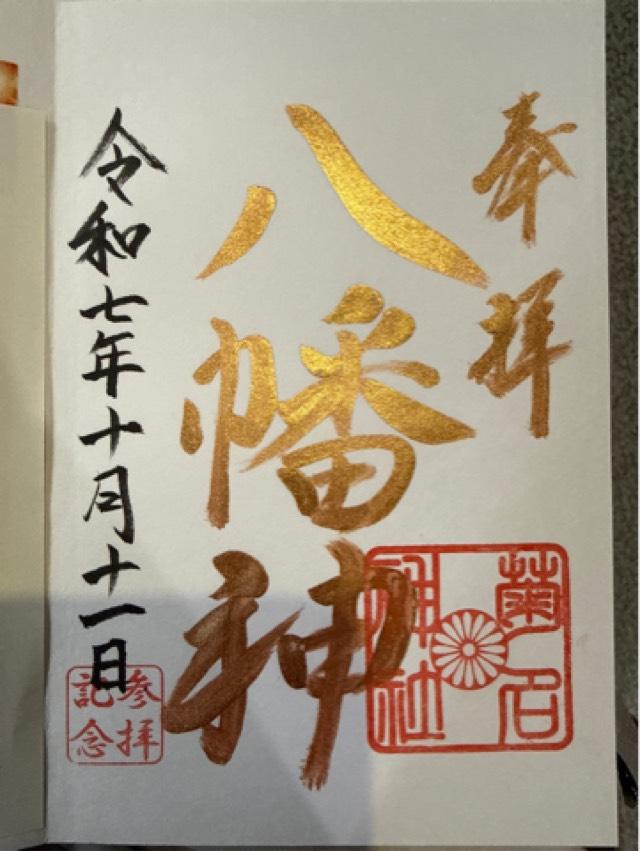 奉拝
八幡神
菊名
神社
令和七年十月十一日
参拝
記念